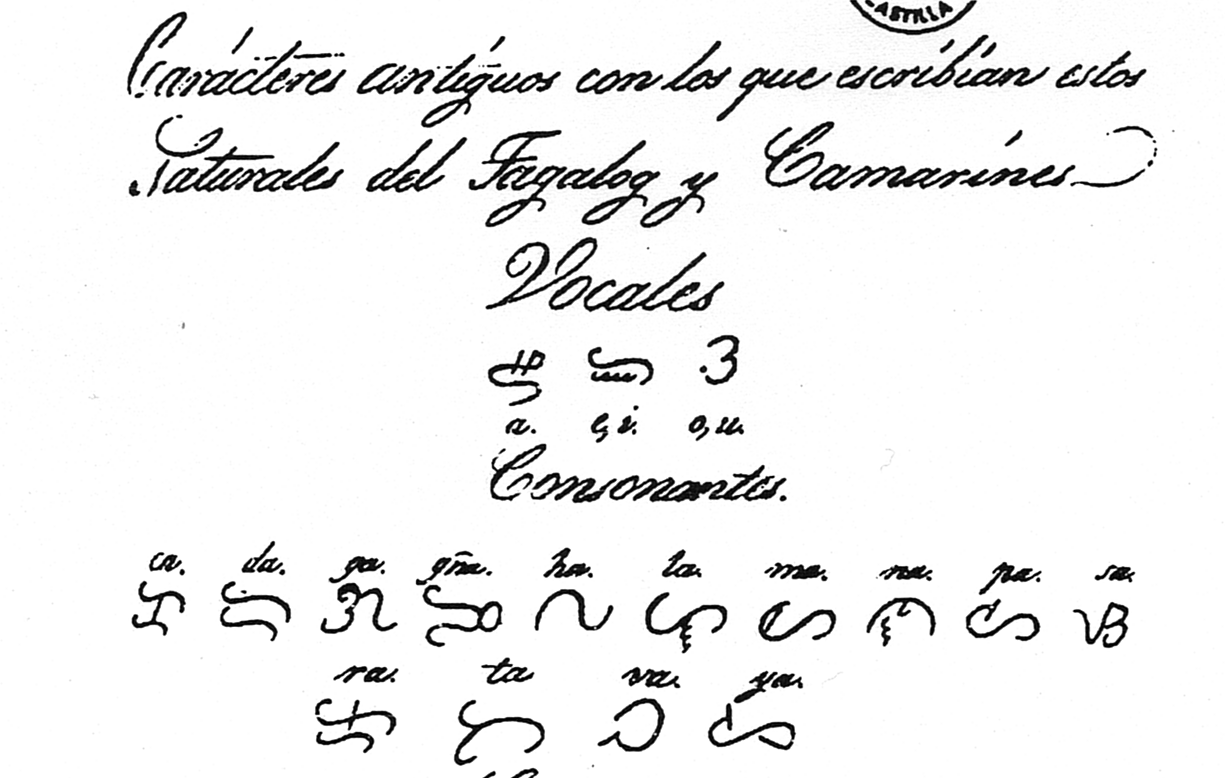 CASTILLA
Carácteres antíguos con los que escribían estos
Naturales del Tagalog y Camarínes
Vocales
ᜀ ᜁ ᜂ
a. e, i. o, u.
Consonantes.
ca. da. ga. gña. ha. la. ma. na. pa. sa.
ᜃ ᜇ ᜄ ᜅ ᜑ ᜎ ᜋ ᜈ ᜉ ᜐ
ra. ta va. ya.
ᜍ ᜆ ᜏ ᜌ